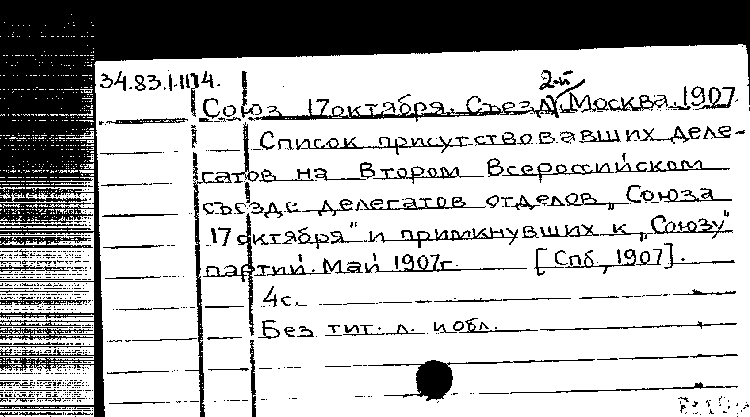 34.83.1.1114.
2-й
Союз 17 октября. Съезд, Москва. 1907.
Список присутствовавших деле-
гатов на Втором Всероссийском
съезде делегатов отделов „Союза
17 октября" и примкнувших к „Союзу"
партий. Май 1907г. [Спб, 1907].
4с.
Без тит. л. и обл.